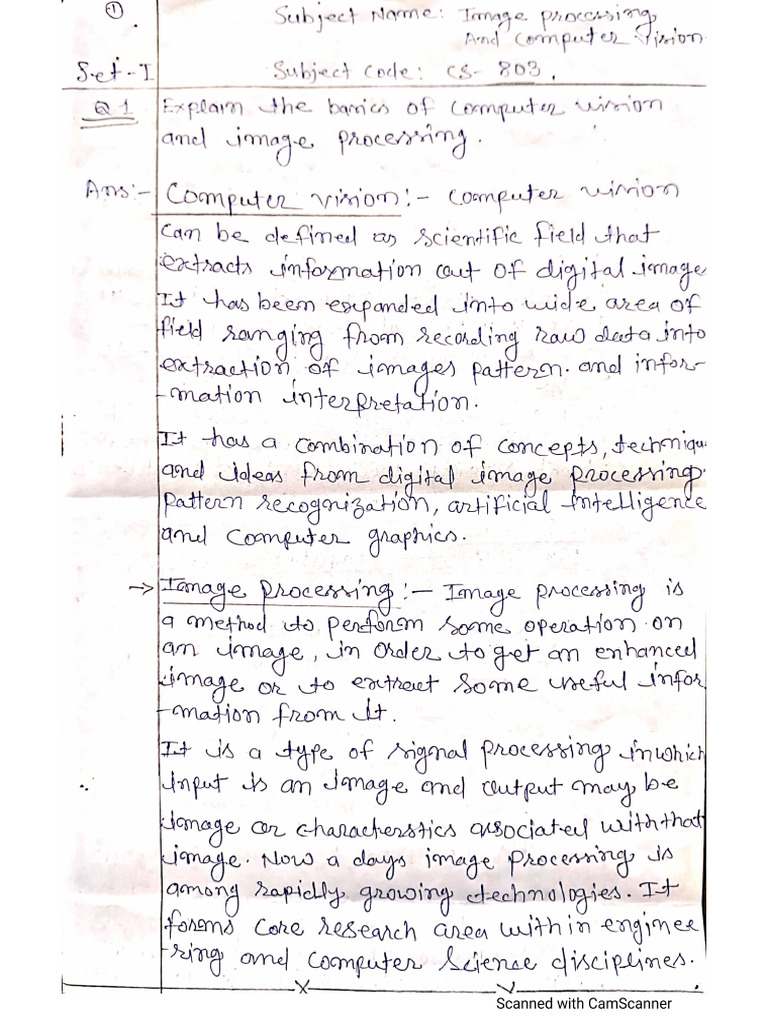 1
Subject Name: Image processing
And computer vision
Set-I Subject Code: CS-803.
Q1 Explain the basics of computer vision
and image processing.
Ans:- Computer vision:- computer vision
can be defined as scientific field that
extracts information out of digital image
It has been expanded into wide area of
field ranging from recording raw data into
extraction of images pattern. and infor-
-mation interpretation.
It has a combination of concepts, techniqu
and ideas from digital image processing.
pattern recognization, artificial intelligence
and computer graphics.
→ Image processing:- Image processing is
a method to perform some operation on
an image, in order to get an enhanced
image or to extract some useful infor
-mation from it.
It is a type of signal processing in which
input is an image and output may be
image or characterstics associated with that
image. Now a days image processing is
among rapidly growing technologies. It
forms core research area within enginee
-ring and computer science disciplines.
Scanned with CamScanner